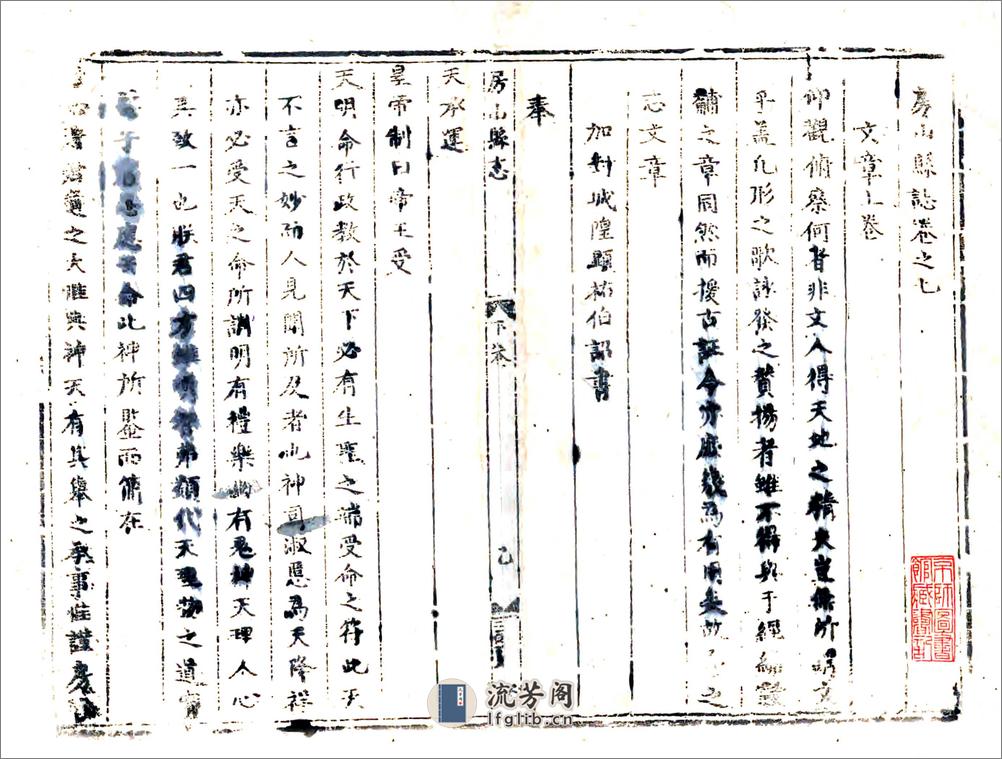 房山縣誌卷之七
文章上卷
仰觀俯察何者非文人得天地之精夫豈無所
乎蓋凡形之歌詠發之贊揚者雖不得與于經
黼之章同然而援古証今亦庶幾為有用矣故之
志文章
加封城隍顯祐伯詔書
房山縣志
下卷
乙
奉
天承運
皇帝制曰帝王受
天明命行政教於天下必有生聖之瑞受命之符此天
不言之妙而人見聞所及者也神司淑慝為天降祥
亦必受天之命所謂明有禮樂幽有鬼神天理人心
其致一也朕君四方雖明智弗類代天理物之道實
此神所鑒而簡在
之大惟典神天有其舉之承事惟謹房山
京師圖書館藏書記
流芳阁
lfglib.cn